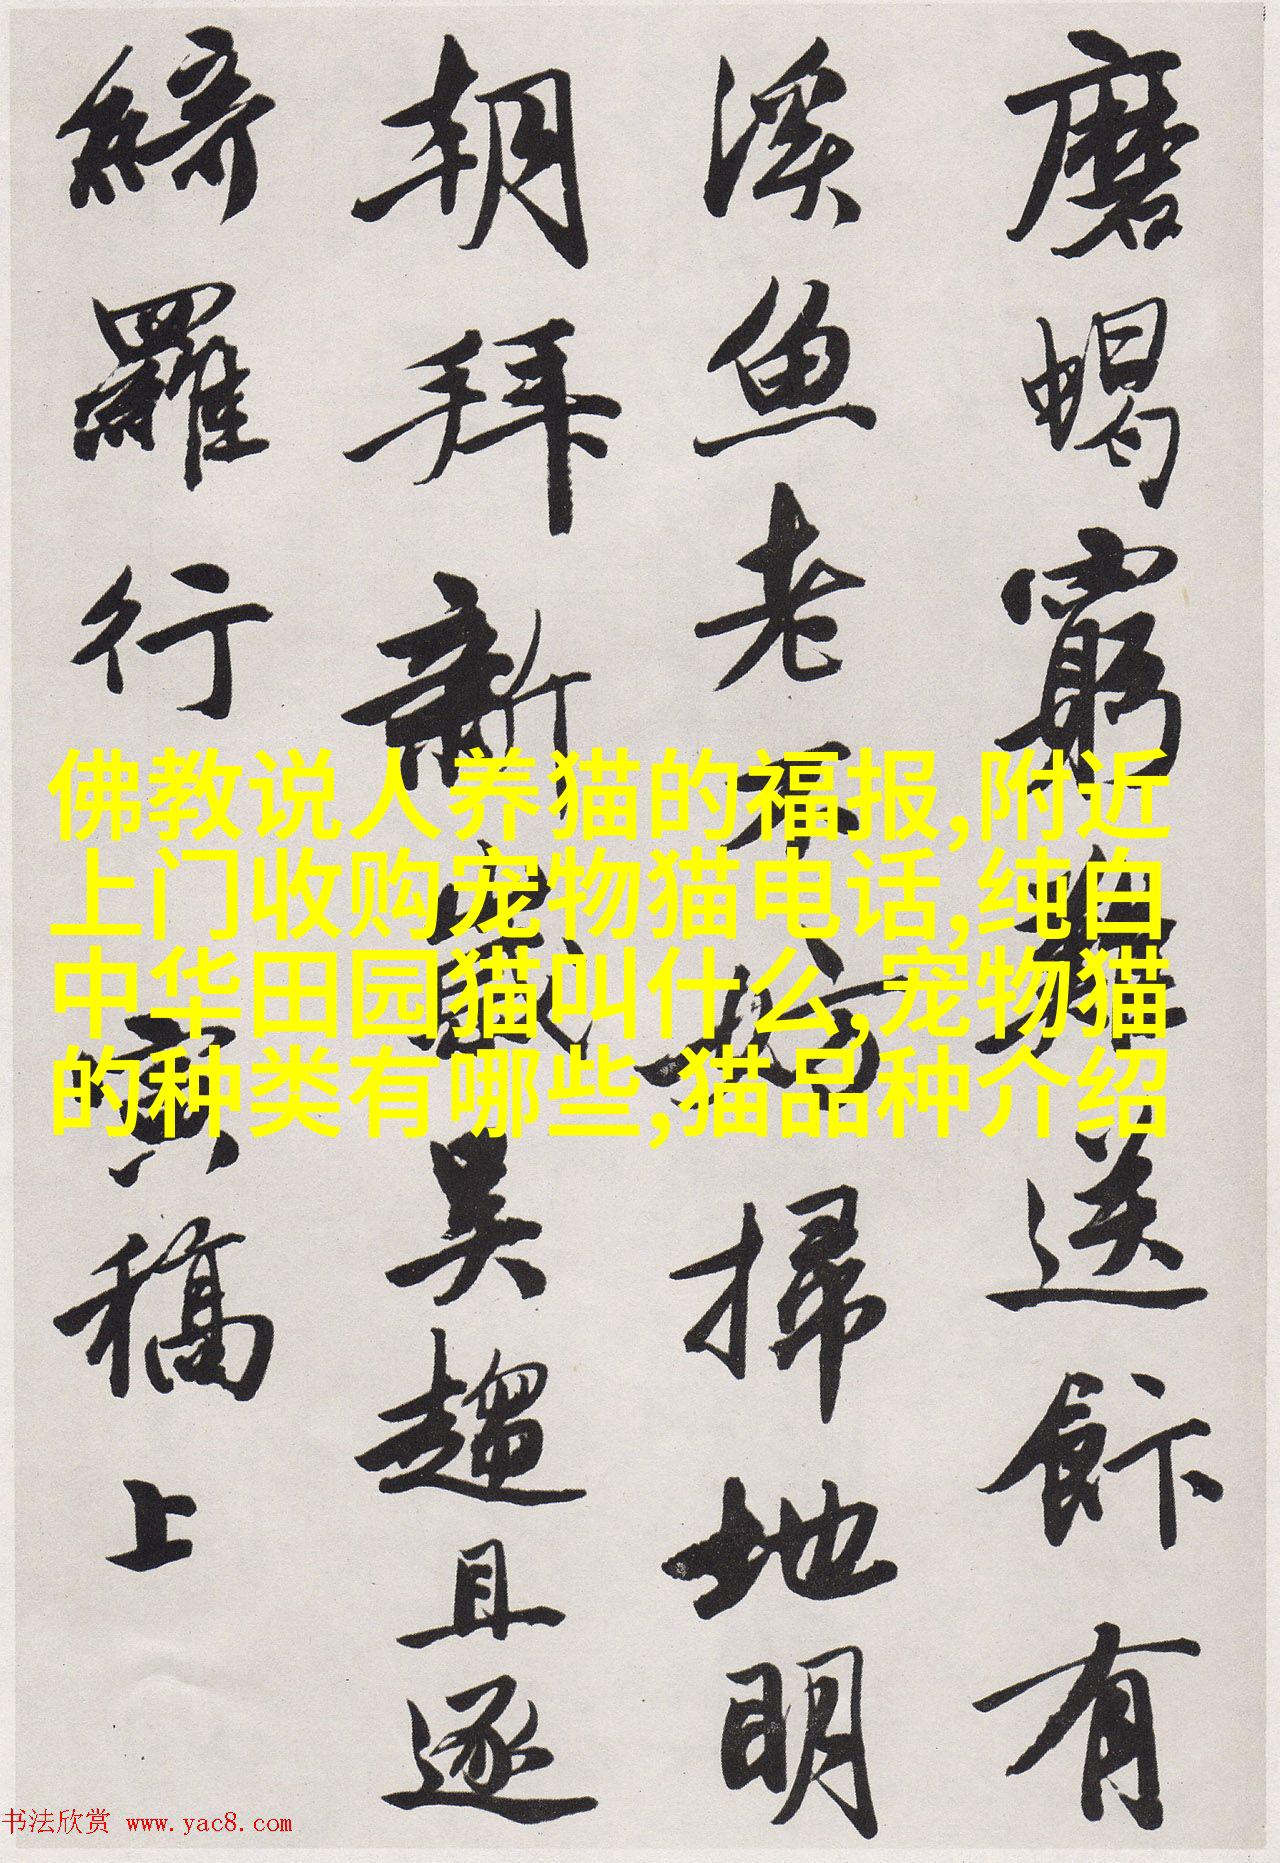 磨蝎窮難送飰有
溪鱼老不妨掃地明
朝拜新歲吴趨且逐
綺羅行寅稿上
佛教说人养猫的福报,附近
上门收购宠物猫电话,纯白
中华田园猫叫什么,宠物猫
的种类有哪些,猫品种介绍
书法欣赏 www.yac8.com